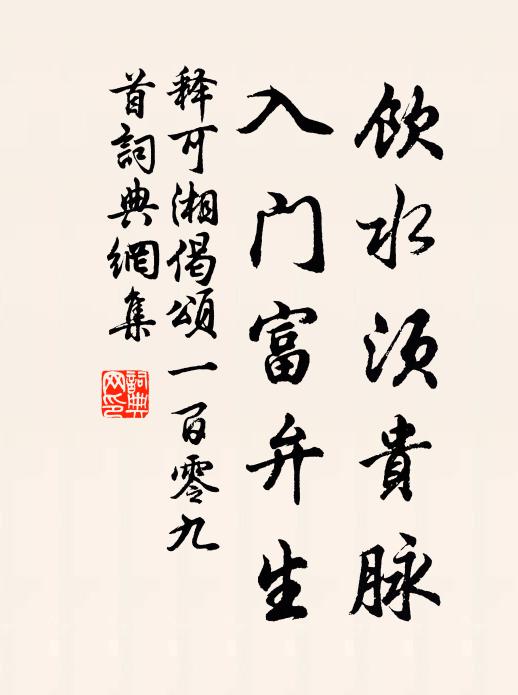 飲水須貴脉
入门富弁生
释可湘偈頌一百零九
首詞典網集
詞典
网印